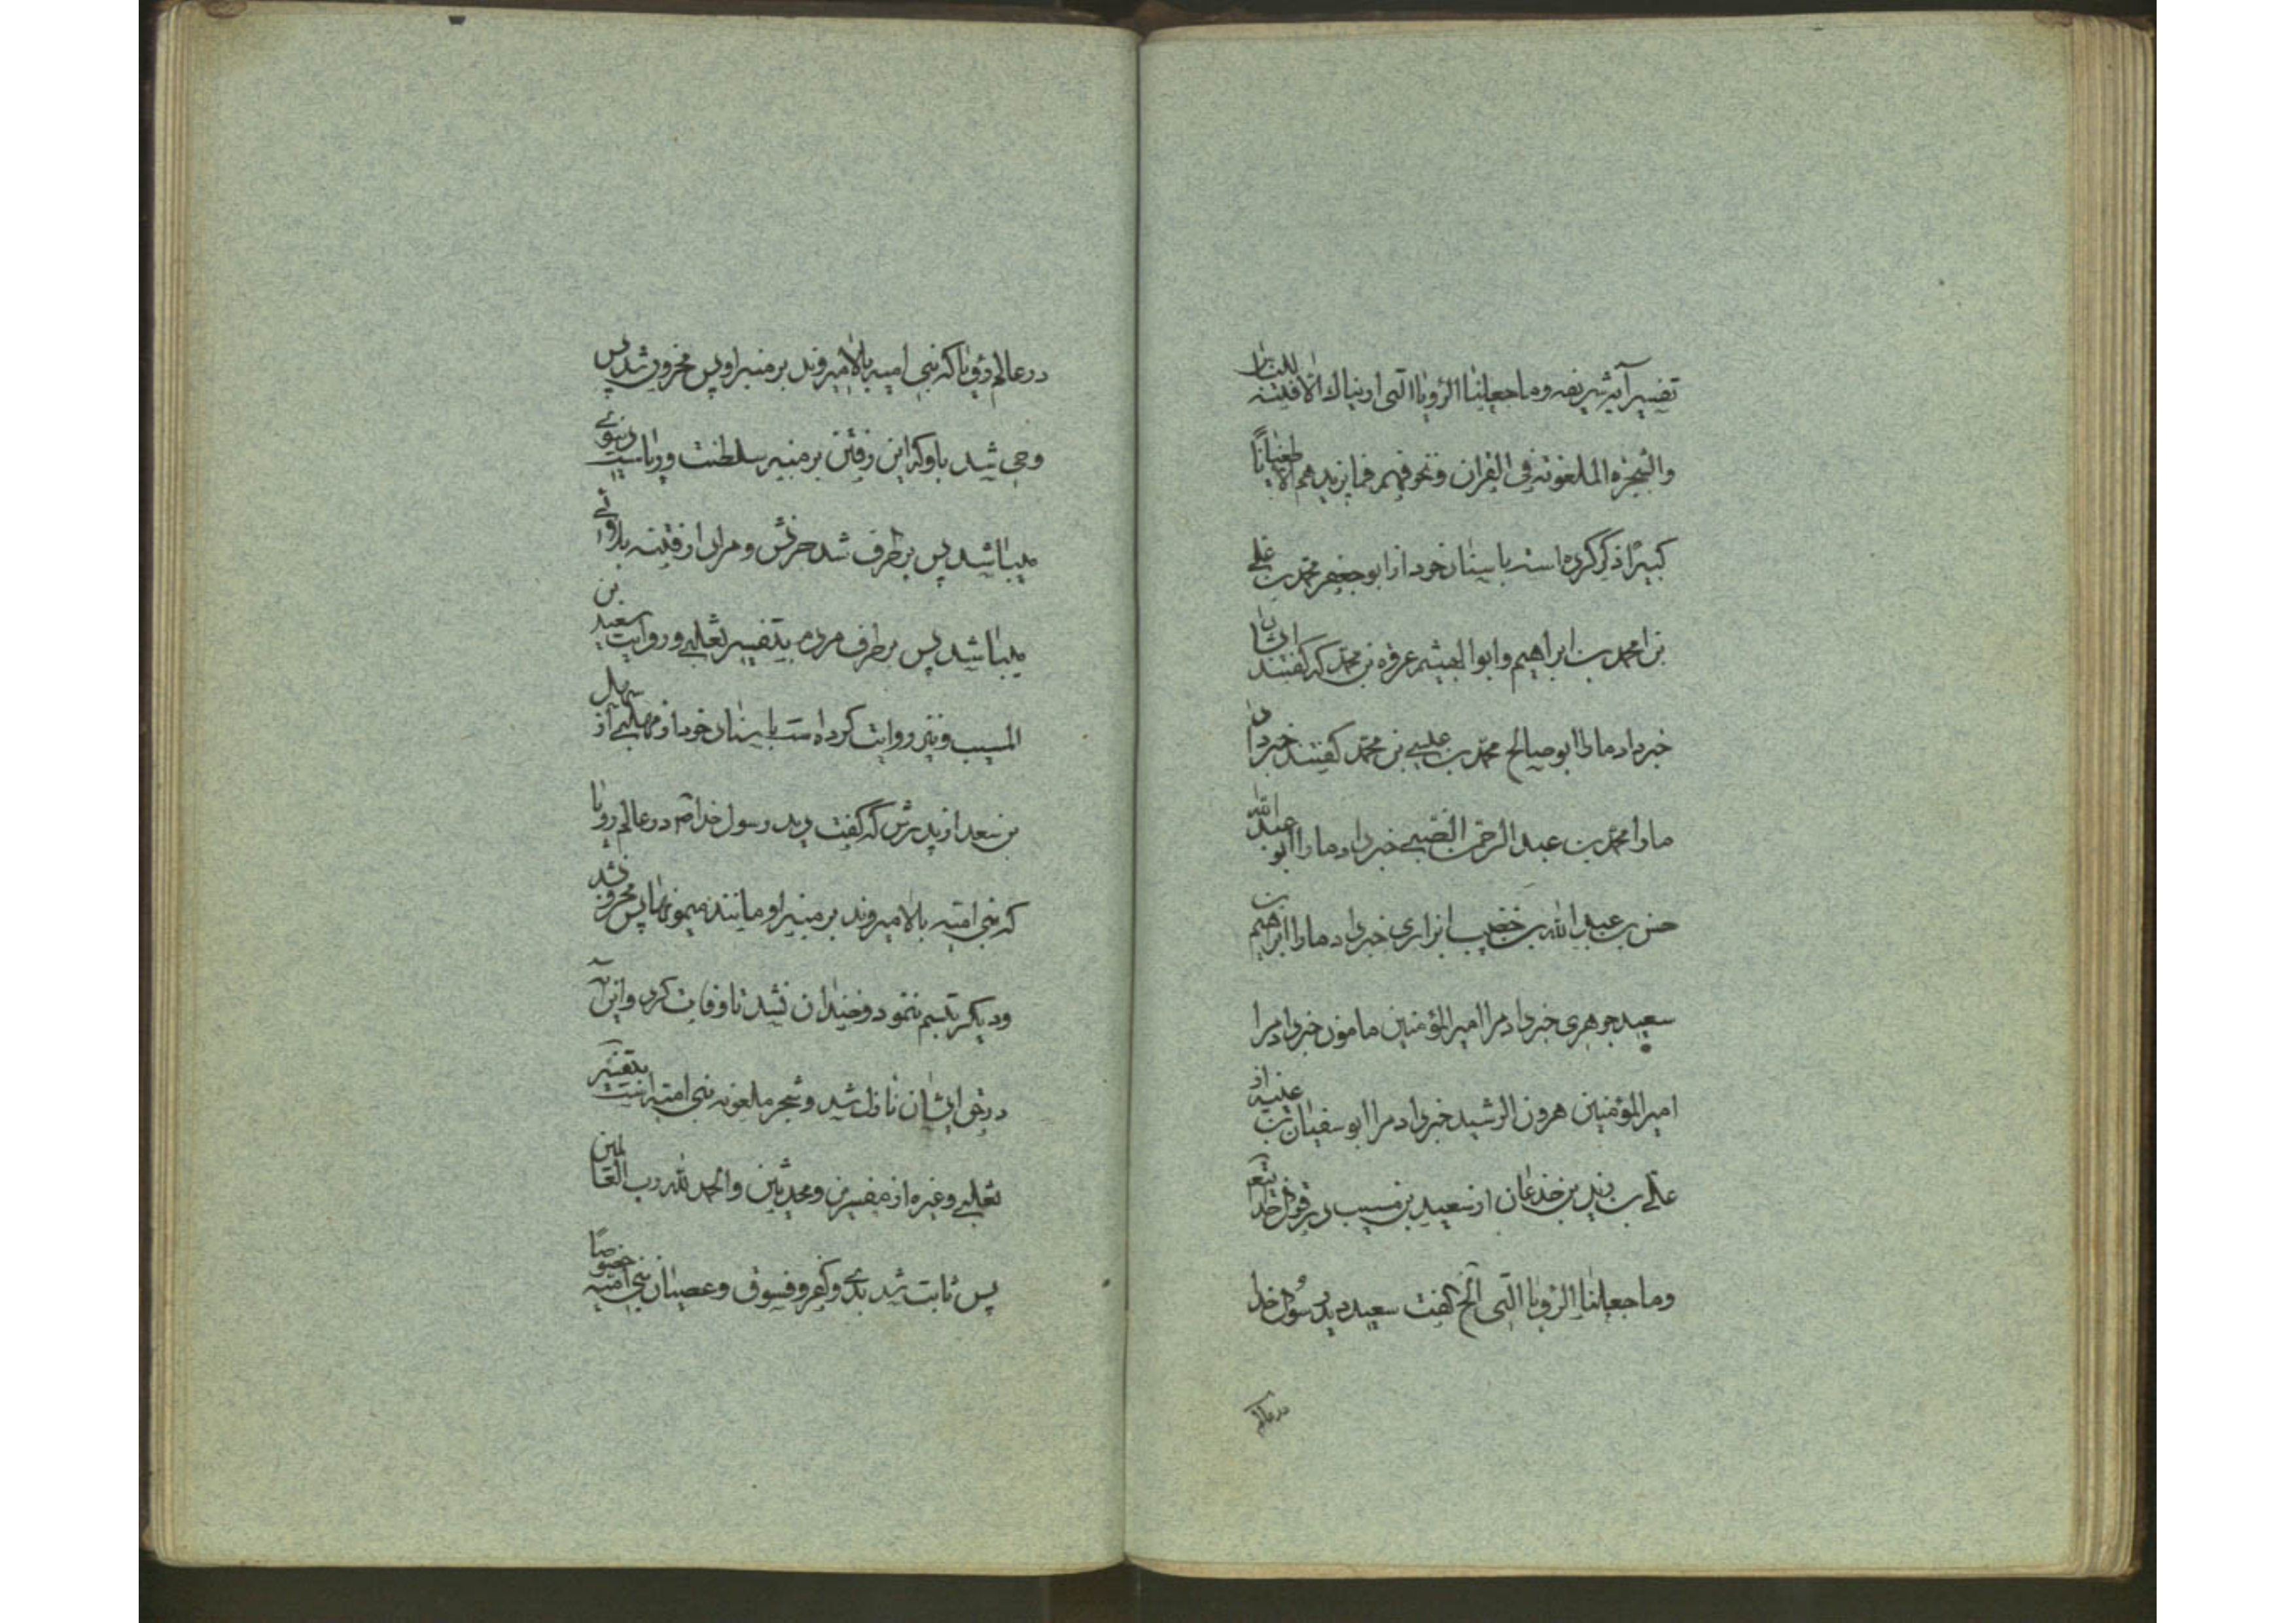 تفسیر آیه شریفه وما جعلنا الرؤیا التی اریناك الا فتنة للناس
والشجرة الملعونة فی القران ونخوفهم فما یزیدهم الا طغیانًا
کبیرًا ذکر کرده است باسناد خود از ابو جعفر محمد بن علی
بن محمد بن ابراهیم وابو عرفه بن محمد که گفتند ایشان
خبر داد ما را ابو صالح محمد بن علی بن محمد گفتند خبر داد
ما را محمد بن عبد الرحمن الضبی خبر داد ما را ابو عبد الله
حسن بن عبید الله بن خضیب ابزاری خبر داد ما را ابراهیم بن
سعید جوهری خبر داد مرا امیر المؤمنین مامون خبر داد مرا
امیر المؤمنین هرون الرشید خبر داد مرا ابو سفیان بن عنیبه از
علی بن زید بن خذعان از سعید بن مسیب در قول خدا
وما جعلنا الرؤیا التی الخ گفت سعید دید رسول خدا
در عالم
در عالم رؤیا که بنی امیه بالا میروند بر منبر او پس محزون شد پس
وحی شد باو که این رفتن بر منبر سلطنت وریاست دنیوی
میباشد پس بر طرف شد حزنش و مراد از فتنه
میباشد پس بر طرف مردم بتفسیر ثعلبی وروایت سعید بن
المسیب ونیز روایت کرده است باسناد خود از مهلبی از سهل
بن سعد از پدرش که گفت دید رسول خدا ص در عالم رویا
که بنی امیه بالا میروند بر منبر او مانند میمونها پس محزون شد
ودیگر تبسم ننمود وخندان نشد تا وفات کرد واین آیه
در حق ایشان نازل شد وشجره ملعونه بنی امیه است بتفسیر
ثعلبی وغیره از مفسرین ومحدثین والحمد لله رب العالمین
پس ثابت شد بدی وکفر وفسوق وعصیان بنی امیه خصوصًا